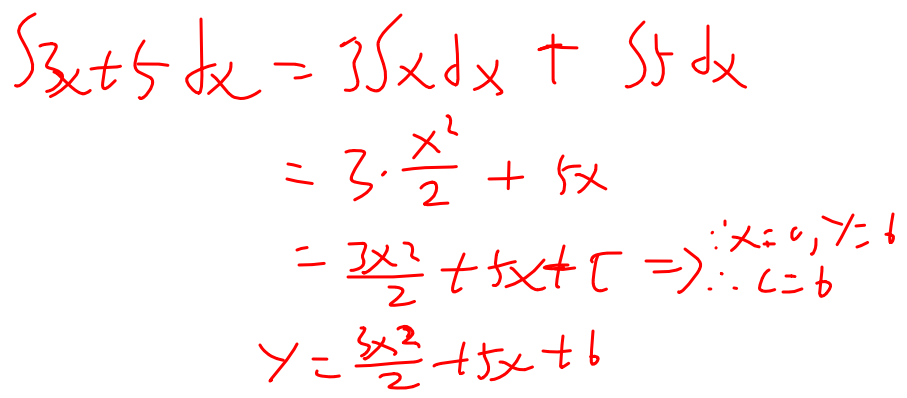 ∫3x+5 dx = 3∫x dx + ∫5 dx
= 3·x²/2 + 5x
= 3x²/2 + 5x + C ⇒ ∵x=0, y=6
∴ c=6
y = 3x²/2 + 5x + 6